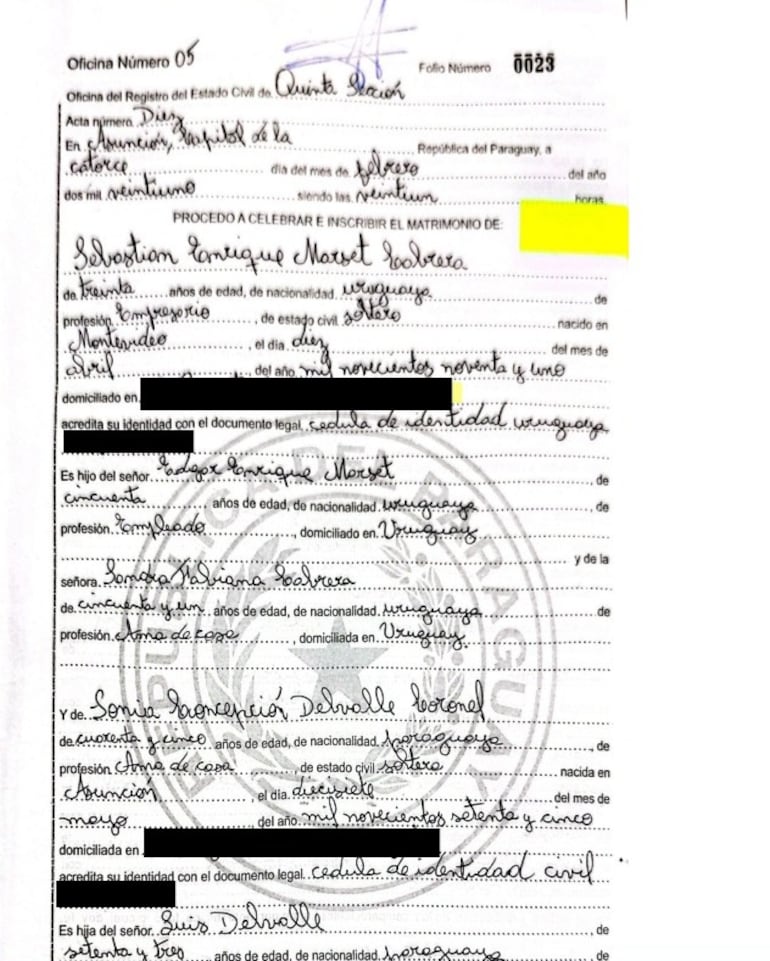 Oficina Número 05
Folio Número 0023
Oficina del Registro del Estado Civil de Quinta Sección
Acta número Diez
En Asunción, Capital de la República del Paraguay, a
catorce día del mes de febrero del año
dos mil veintiuno siendo las veintiun horas
PROCEDO A CELEBRAR E INSCRIBIR EL MATRIMONIO DE:
Sebastian Enrique Marset Cabrera
de treinta años de edad, de nacionalidad uruguaya de
profesión Empresario, de estado civil soltero nacido en
Montevideo, el día diez del mes de
abril del año mil novecientos noventa y uno
domiciliado en
acredita su identidad con el documento legal cedula de identidad uruguaya
Es hijo del señor Edgar Enrique Marset, de
cincuenta años de edad, de nacionalidad uruguaya, de
profesión Empleado, domiciliado en Uruguay
y de la
señora Sandra Fabiana Cabrera
de cincuenta y un años de edad, de nacionalidad uruguaya de
profesión Ama de casa, domiciliada en Uruguay.
Y de Sonia Concepción Delvalle Coronel
de cuarenta y cinco años de edad, de nacionalidad paraguaya, de
profesión Ama de casa, de estado civil soltera nacida en
Asunción, el día diecisiete del mes de
mayo del año mil novecientos setenta y cinco
domiciliada en
acredita su identidad con el documento legal cedula de identidad civil
Es hija del señor Luis Delvalle, de
setenta y tres años de edad, de nacionalidad paraguaya, de
REPUBLICA DEL PARAGUAY